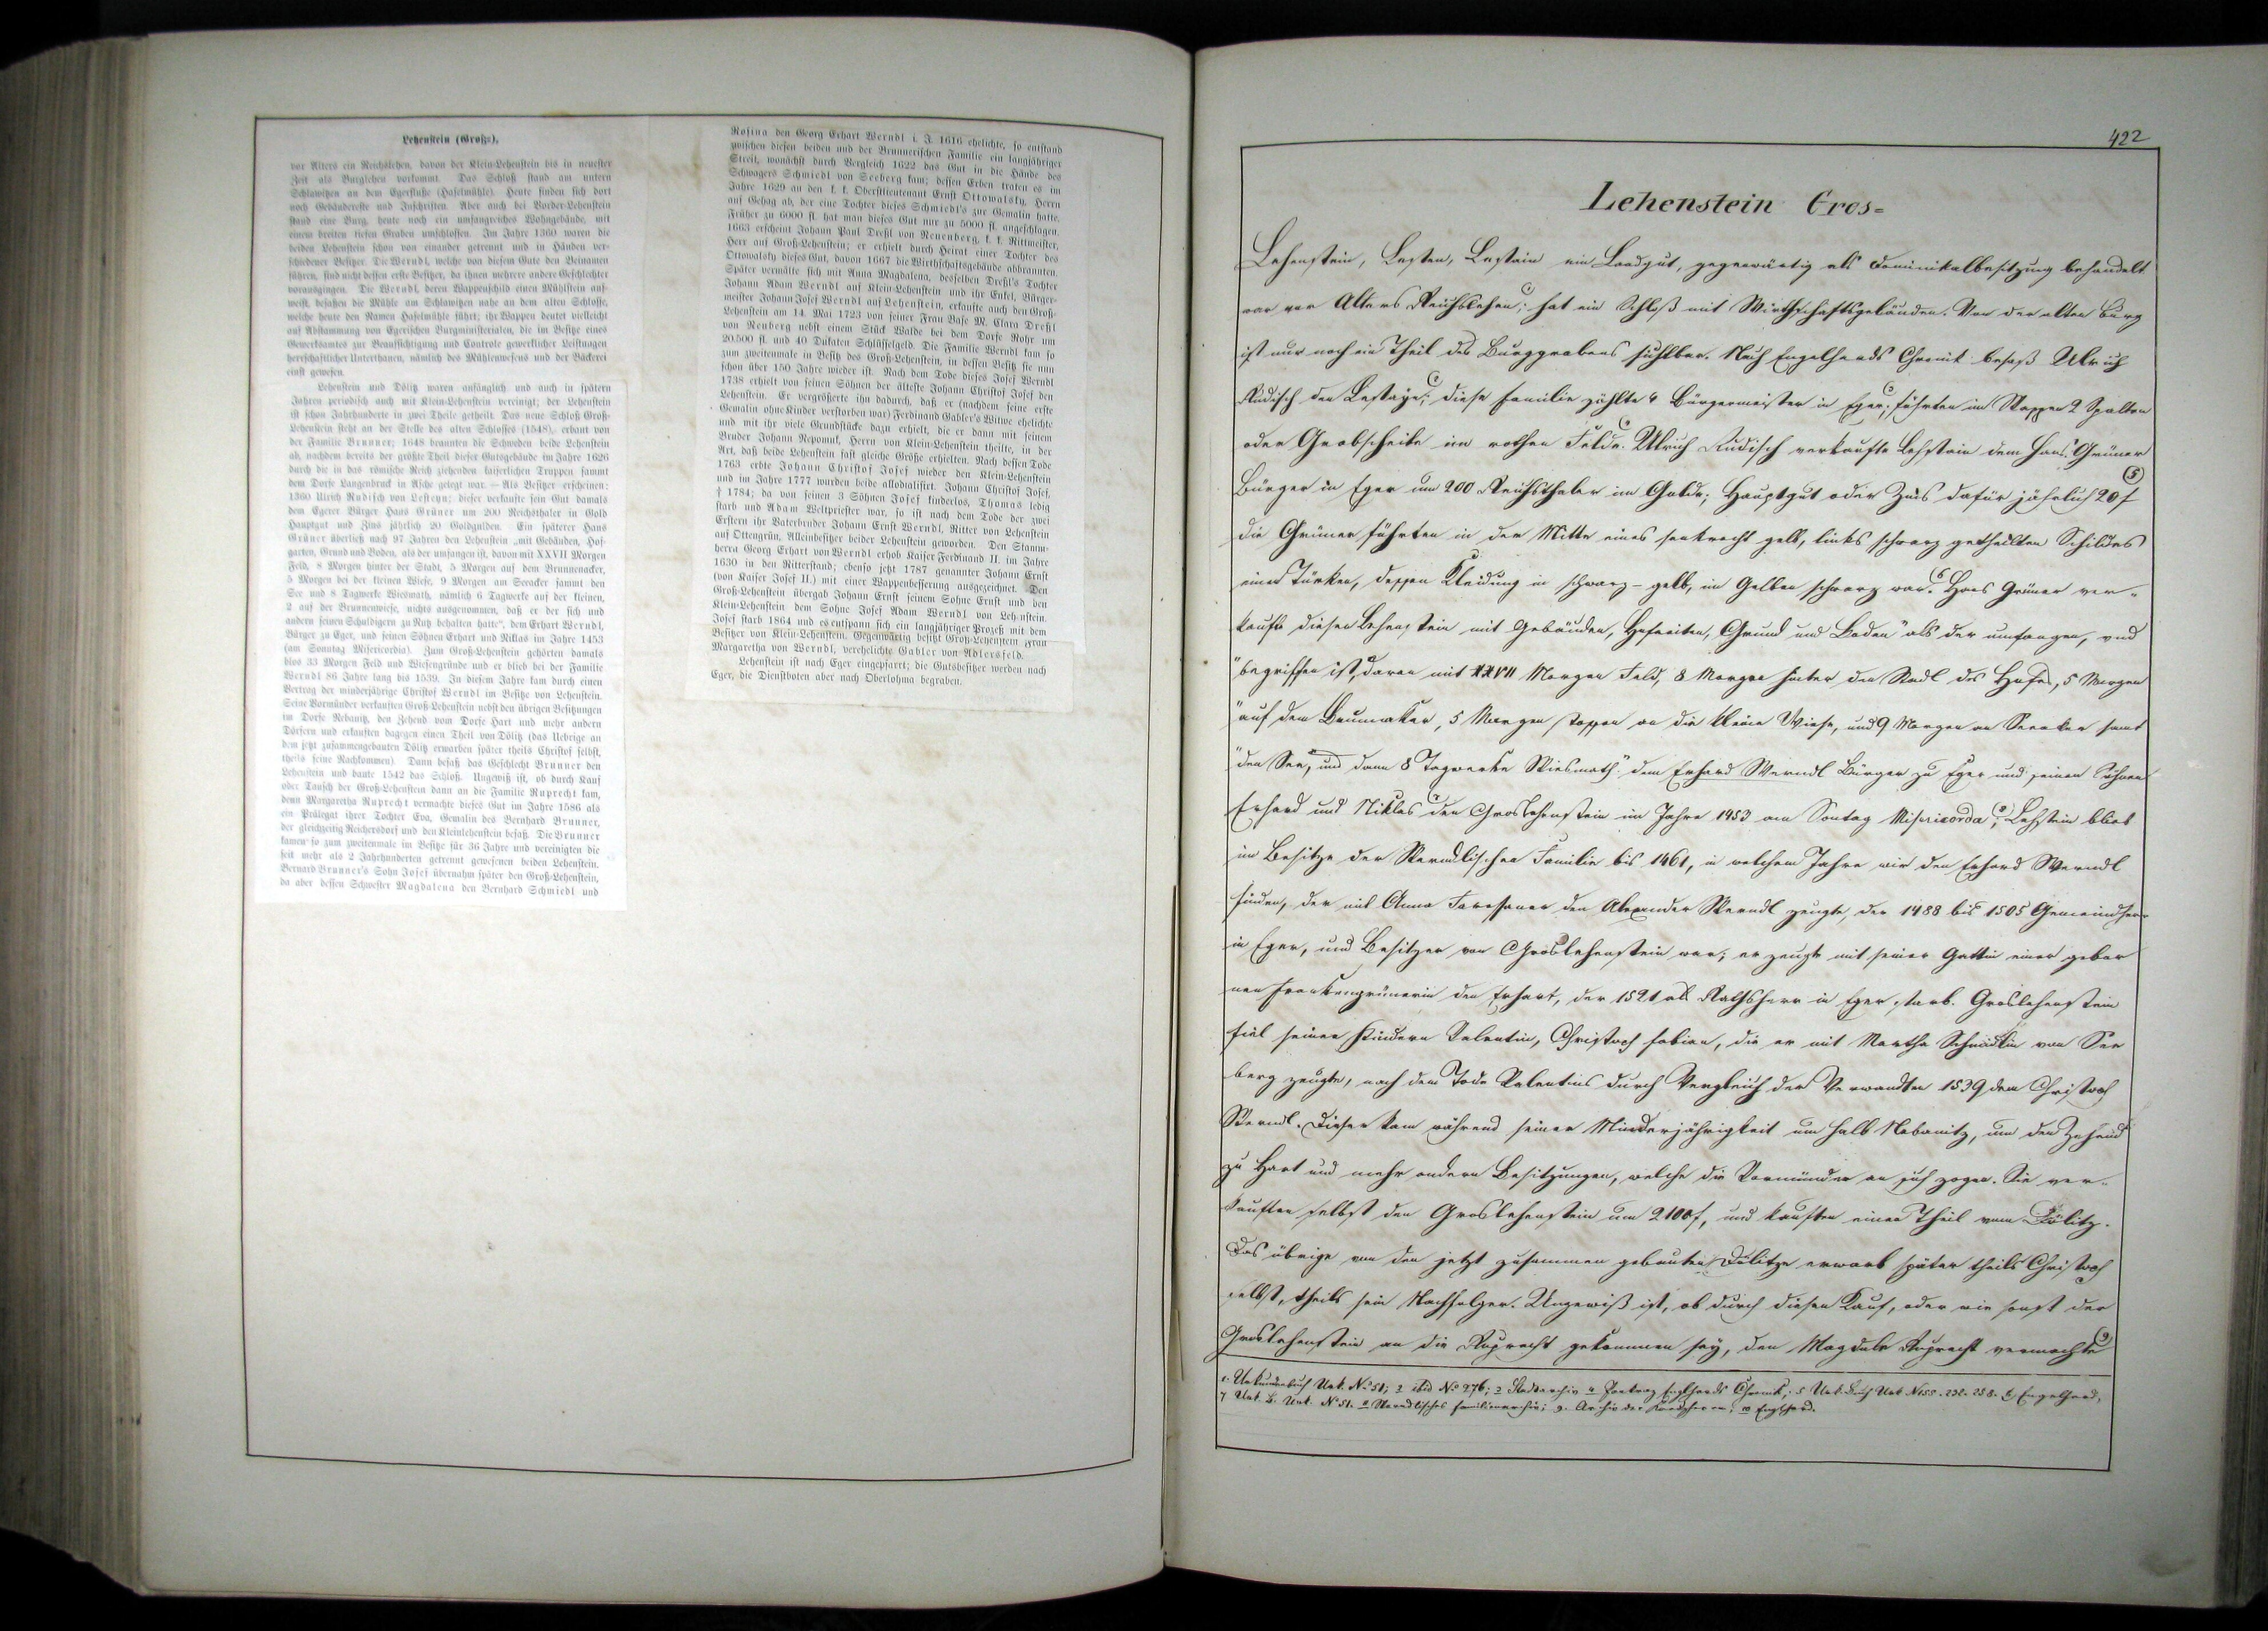 Lehenstein (Groß=),
vor Alters ein Reichslehen, davon der Klein-Lehenstein bis in neuester
Zeit als Burglehen vorkommt. Das Schloß stand am untern
Schlawitzen an dem Egerflusse (Haselmühle). Heute finden sich dort
noch Gebäudereste und Inschriften. Aber auch bei Vorder-Lehenstein
stand eine Burg, heute noch ein umfangreiches Wohngebäude, mit
einem breiten tiefen Graben umschlossen. Im Jahre 1360 waren die
beiden Lehenstein schon von einander getrennt und in Händen ver-
schiedener Besitzer. Die Werndl, welche von diesem Gute den Beinamen
führen, sind nicht dessen erste Besitzer, da ihnen mehrere andere Geschlechter
vorausgingen. Die Werndl, deren Wappenschild einen Mühlstein auf-
weist, besaßen die Mühle am Schlawitzen nahe an dem alten Schlosse,
welche heute den Namen Haselmühle führt; ihr Wappen deutet vielleicht
auf Abstammung von Egerischen Burgministerialen, die im Besitze eines
Gewerksamtes zur Beaufsichtigung und Controle gewerklicher Leistungen
herrschaftlicher Unterthanen, nämlich des Mühlenwesens und der Bäckerei
einst gewesen.
Lehenstein und Dölitz waren anfänglich und auch in spätern
Jahren periodisch auch mit Klein-Lehenstein vereinigt; der Lehenstein
ist schon Jahrhunderte in zwei Theile getheilt. Das neue Schloß Groß-
Lehenstein steht an der Stelle des alten Schlosses (1548), erbaut von
der Familie Brunner; 1648 brannten die Schweden beide Lehenstein
ab, nachdem bereits der größte Theil dieser Gutsgebäude im Jahre 1626
durch die in das römische Reich ziehenden kaiserlichen Truppen sammt
dem Dorfe Langenbruck in Asche gelegt war. — Als Besitzer erscheinen:
1360 Ulrich Rudisch von Lesteyn; dieser verkaufte sein Gut damals
dem Egerer Bürger Hans Grüner um 200 Reichsthaler in Gold
Hauptgut und Zins jährlich 20 Goldgulden. Ein späterer Hans
Grüner überließ nach 97 Jahren den Lehenstein „mit Gebäuden, Hof-
garten, Grund und Boden, als der umfangen ist, davon mit XXVII Morgen
Feld, 8 Morgen hinter der Stadt, 5 Morgen auf dem Brunnenacker,
5 Morgen bei der kleinen Wiese, 9 Morgen am Seracker sammt den
See und 8 Tagwerke Wiesmath, nämlich 6 Tagwerke auf der kleinen,
2 auf der Brunnenwiese, nichts ausgenommen, daß er der sich und
andern seinen Schuldigern zu Nutz behalten hatte“, dem Erhart Werndl,
Bürger zu Eger, und seinen Söhnen Erhart und Niklas im Jahre 1453
(am Sonntag Misericordia). Zum Groß-Lehenstein gehörten damals
blos 33 Morgen Feld und Wiesengründe und er blieb bei der Familie
Werndl 86 Jahre lang bis 1539. In diesem Jahre kam durch einen
Vertrag der minderjährige Christof Werndl im Besitze von Lehenstein.
Seine Vormünder verkauften Groß-Lehenstein nebst den übrigen Besitzungen
im Dorfe Nebanitz, den Zehend vom Dorfe Hart und mehr andern
Dörfern und erkauften dagegen einen Theil von Dölitz (das Uebrige an
dem jetzt zusammengebauten Dölitz erwarben später theils Christof selbst,
theils seine Nachkommen). Dann besaß das Geschlecht Brunner den
Lehenstein und baute 1542 das Schloß. Ungewiß ist, ob durch Kauf
oder Tausch der Groß-Lehenstein dann an die Familie Ruprecht kam,
denn Margaretha Ruprecht vermachte dieses Gut im Jahre 1586 als
ein Prälegat ihrer Tochter Eva, Gemalin des Bernhard Brunner,
der gleichzeitig Reichersdorf und den Kleinlehenstein besaß. Die Brunner
kamen so zum zweitenmale im Besitze für 36 Jahre und vereinigten die
seit mehr als 2 Jahrhunderten getrennt gewesenen beiden Lehenstein.
Bernard Brunner's Sohn Josef übernahm später den Groß-Lehenstein,
da aber dessen Schwester Magdalena den Bernhard Schmiedl und
Rosina den Georg Erhart Werndl i. J. 1616 ehelichte, so entstand
zwischen diesen beiden und der Brunnerischen Familie ein langjähriger
Streit, wonächst durch Vergleich 1622 das Gut in die Hände des
Schwagers Schmiedl von Seeberg kam; dessen Erben traten es im
Jahre 1629 an den k. k. Oberstlieutenant Ernst Ottowalsky, Herrn
auf Gehag ab, der eine Tochter dieses Schmiedl's zur Gemalin hatte.
Früher zu 6000 fl. hat man dieses Gut nur zu 5000 fl. angeschlagen.
1663 erscheint Johann Paul Dreßl von Neuenberg, k. k. Rittmeister,
Herr auf Groß-Lehenstein; er erhielt durch Heirat einer Tochter des
Ottowalsky dieses Gut, davon 1667 die Wirthschaftsgebäude abbrannten.
Später vermälte sich mit Anna Magdalena, desselben Dreßl's Tochter
Johann Adam Werndl auf Klein-Lehenstein und ihr Enkel, Bürger-
meister Johann Josef Werndl auf Lehenstein, erkaufte auch den Groß-
Lehenstein am 14. Mai 1723 von seiner Frau Base M. Clara Dreßl
von Neuberg nebst einem Stück Walde bei dem Dorfe Rohr um
20.500 fl. und 40 Dukaten Schlüsselgeld. Die Familie Werndl kam so
zum zweitenmale in Besitz des Groß-Lehenstein, in dessen Besitz sie nun
schon über 150 Jahre wieder ist. Nach dem Tode dieses Josef Werndl
1738 erhielt von seinen Söhnen der älteste Johann Christof Josef den
Lehenstein. Er vergrößerte ihn dadurch, daß er (nachdem seine erste
Gemalin ohne Kinder verstorben war) Ferdinand Gabler's Witwe ehelichte
und mit ihr viele Grundstücke dazu erhielt, die er dann mit seinem
Bruder Johann Nepomuk, Herrn von Klein-Lehenstein theilte, in der
Art, daß beide Lehenstein fast gleiche Größe erhielten. Nach dessen Tode
1763 erbte Johann Christof Josef wieder den Klein-Lehenstein
und im Jahre 1777 wurden beide allodialisirt. Johann Christof Josef,
† 1784; da von seinen 3 Söhnen Josef kinderlos, Thomas ledig
starb und Adam Weltpriester war, so ist nach dem Tode der zwei
Erstern ihr Vaterbruder Johann Ernst Werndl, Ritter von Lehenstein
auf Ottengrün, Alleinbesitzer beider Lehenstein geworden. Den Stamm-
herrn Georg Erhart von Werndl erhob Kaiser Ferdinand II. im Jahre
1630 in den Ritterstand; ebenso jetzt 1787 genannter Johann Ernst
(von Kaiser Josef II.) mit einer Wappenbesserung ausgezeichnet. Den
Groß-Lehenstein übergab Johann Ernst seinem Sohne Ernst und den
Klein-Lehenstein dem Sohne Josef Adam Werndl von Lehenstein.
Josef starb 1864 und es entspann sich ein langjähriger Prozeß mit dem
Besitzer von Klein-Lehenstein. Gegenwärtig besitzt Groß-Lehenstein Frau
Margaretha von Werndl, verehelichte Gabler von Adlersfeld.
Lehenstein ist nach Eger eingepfarrt; die Gutsbesitzer werden nach
Eger, die Dienstboten aber nach Oberlohma begraben.
422
Lehenstein Gros=
Lehenstein, Lesten, Lestain ein Landgut, gegenwärtig als Dominikalbesitzung behandelt
war vor Alters Reichslehen; hat ein Schloß mit Wirthschaftsgebäuden. Von der alten Burg
ist nur noch ein Theil des Burggrabens sichtbar. Nach Engelhards Chronik besaß Ulrich
Rudisch den Lestayn; diese Familie zählte 4 Bürgermeister in Eger; führten im Wappen 2 Spalten
oder Grabscheite im rothen Felde. Ulrich Rudisch verkaufte Lehstain dem Hans Grüner
Bürger in Eger um 200 Reichsthaler im Golde; Hauptgut oder Zins dafür jährlich 20 f (5)
die Grüner führten in der Mitte eines senkrecht gelb, links schwarz getheilten Schildes
einen Türken, dessen Kleidung in schwarz – gelb, im Gelben schwarz war. 6 Hans Grüner ver-
kaufte diesen Lehenstein mit Gebäuden, Hofraiten, Grund und Boden "als der umfangen, und
"begriffen ist, davon mit XXVII Morgen Feld, 8 Morgen hinter den Stadl des Hofes, 5 Morgen
"auf dem Baumaker, 5 Morgen stossen an die kleine Wiese, und 9 Morgen am Seeaker samt
"den See, und dann 8 Tagwerke Wiesmath" dem Erhard Werndl Bürger zu Eger und seinen Söhnen
Erhard und Niklas den Groslehenstein im Jahre 1453 am Sontag Misericorda; Lehstein blieb
im Besitze der Werndlischen Familie bis 1461, in welchem Jahre wir den Erhard Werndl
finden, der mit Anna den Alexander Werndl zeugte, der 1488 bis 1505 Gemeindherr
in Eger, und Besitzer von Groslehenstein war; er zeugte mit seiner Gattin einer gebor
nen Frankengrünerin den Erhart, der 1521 als Rathsherr in Eger starb. Groslehenstein
fiel seinen Kindern Valentin, Christoph Fabian, die er mit Martha Schmidlin von See
berg zeugte, nach dem Tode Valentins durch Vergleich der Verwandten 1539 dem Christoph
Werndl. Dieser kam während seiner Minderjährigkeit um halb Nebanitz, um den Zehend
zu Hart und mehr andern Besitzungen, welche die Vormünder an sich zogen. Sie ver-
kauften selbst den Groslehenstein um 2100f, und kauften einen Theil vom Dölitz.
Das übrige von den jetzt zusammen gebauten Dölitze erwarb später theils Christoph
selbst, theils sein Nachfolger. Ungewiß ist, ob durch diesen Kauf, oder wie sonst der
Groslehenstein an die Ruprecht gekommen sey, den Magdale Ruprecht vermachte 9
1. Urkundenbuch Urk. No 51; 2 ibid No 276; 3 Stadtarchiv 4 Engelhards Chronik; 5 Urk. Buch Urk N 155. 232. 258. 6 Engelhard;
7 Urk. B. Urk. No 51. 8 Werndlisches Familienarchiv; 9. Archiv der; 10 Englhard.